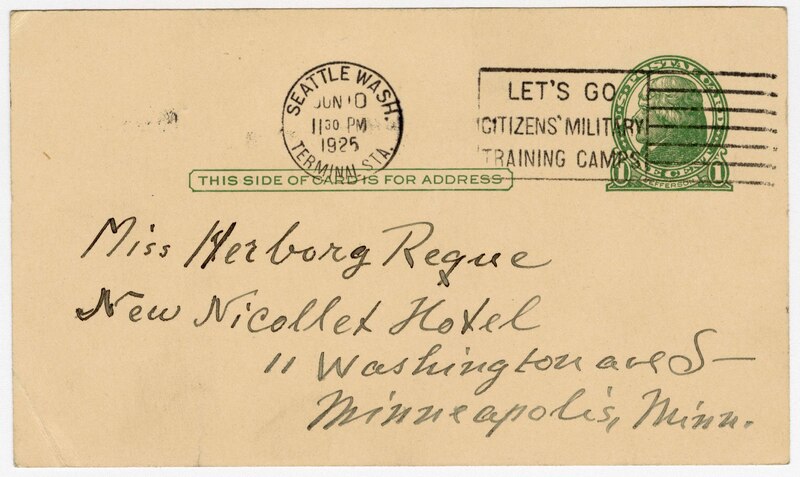 SEATTLE WASH.
JUN 10
11 30 PM
1925
TERMINAL STA.
LET'S GO
CITIZENS' MILITARY
TRAINING CAMPS
U.S. POSTAL CARD
ONE CENT
1 JEFFERSON 1
THIS SIDE OF CARD IS FOR ADDRESS
Miss Herborg Reque
New Nicollet Hotel
11 Washington ave S—
Minneapolis, Minn.